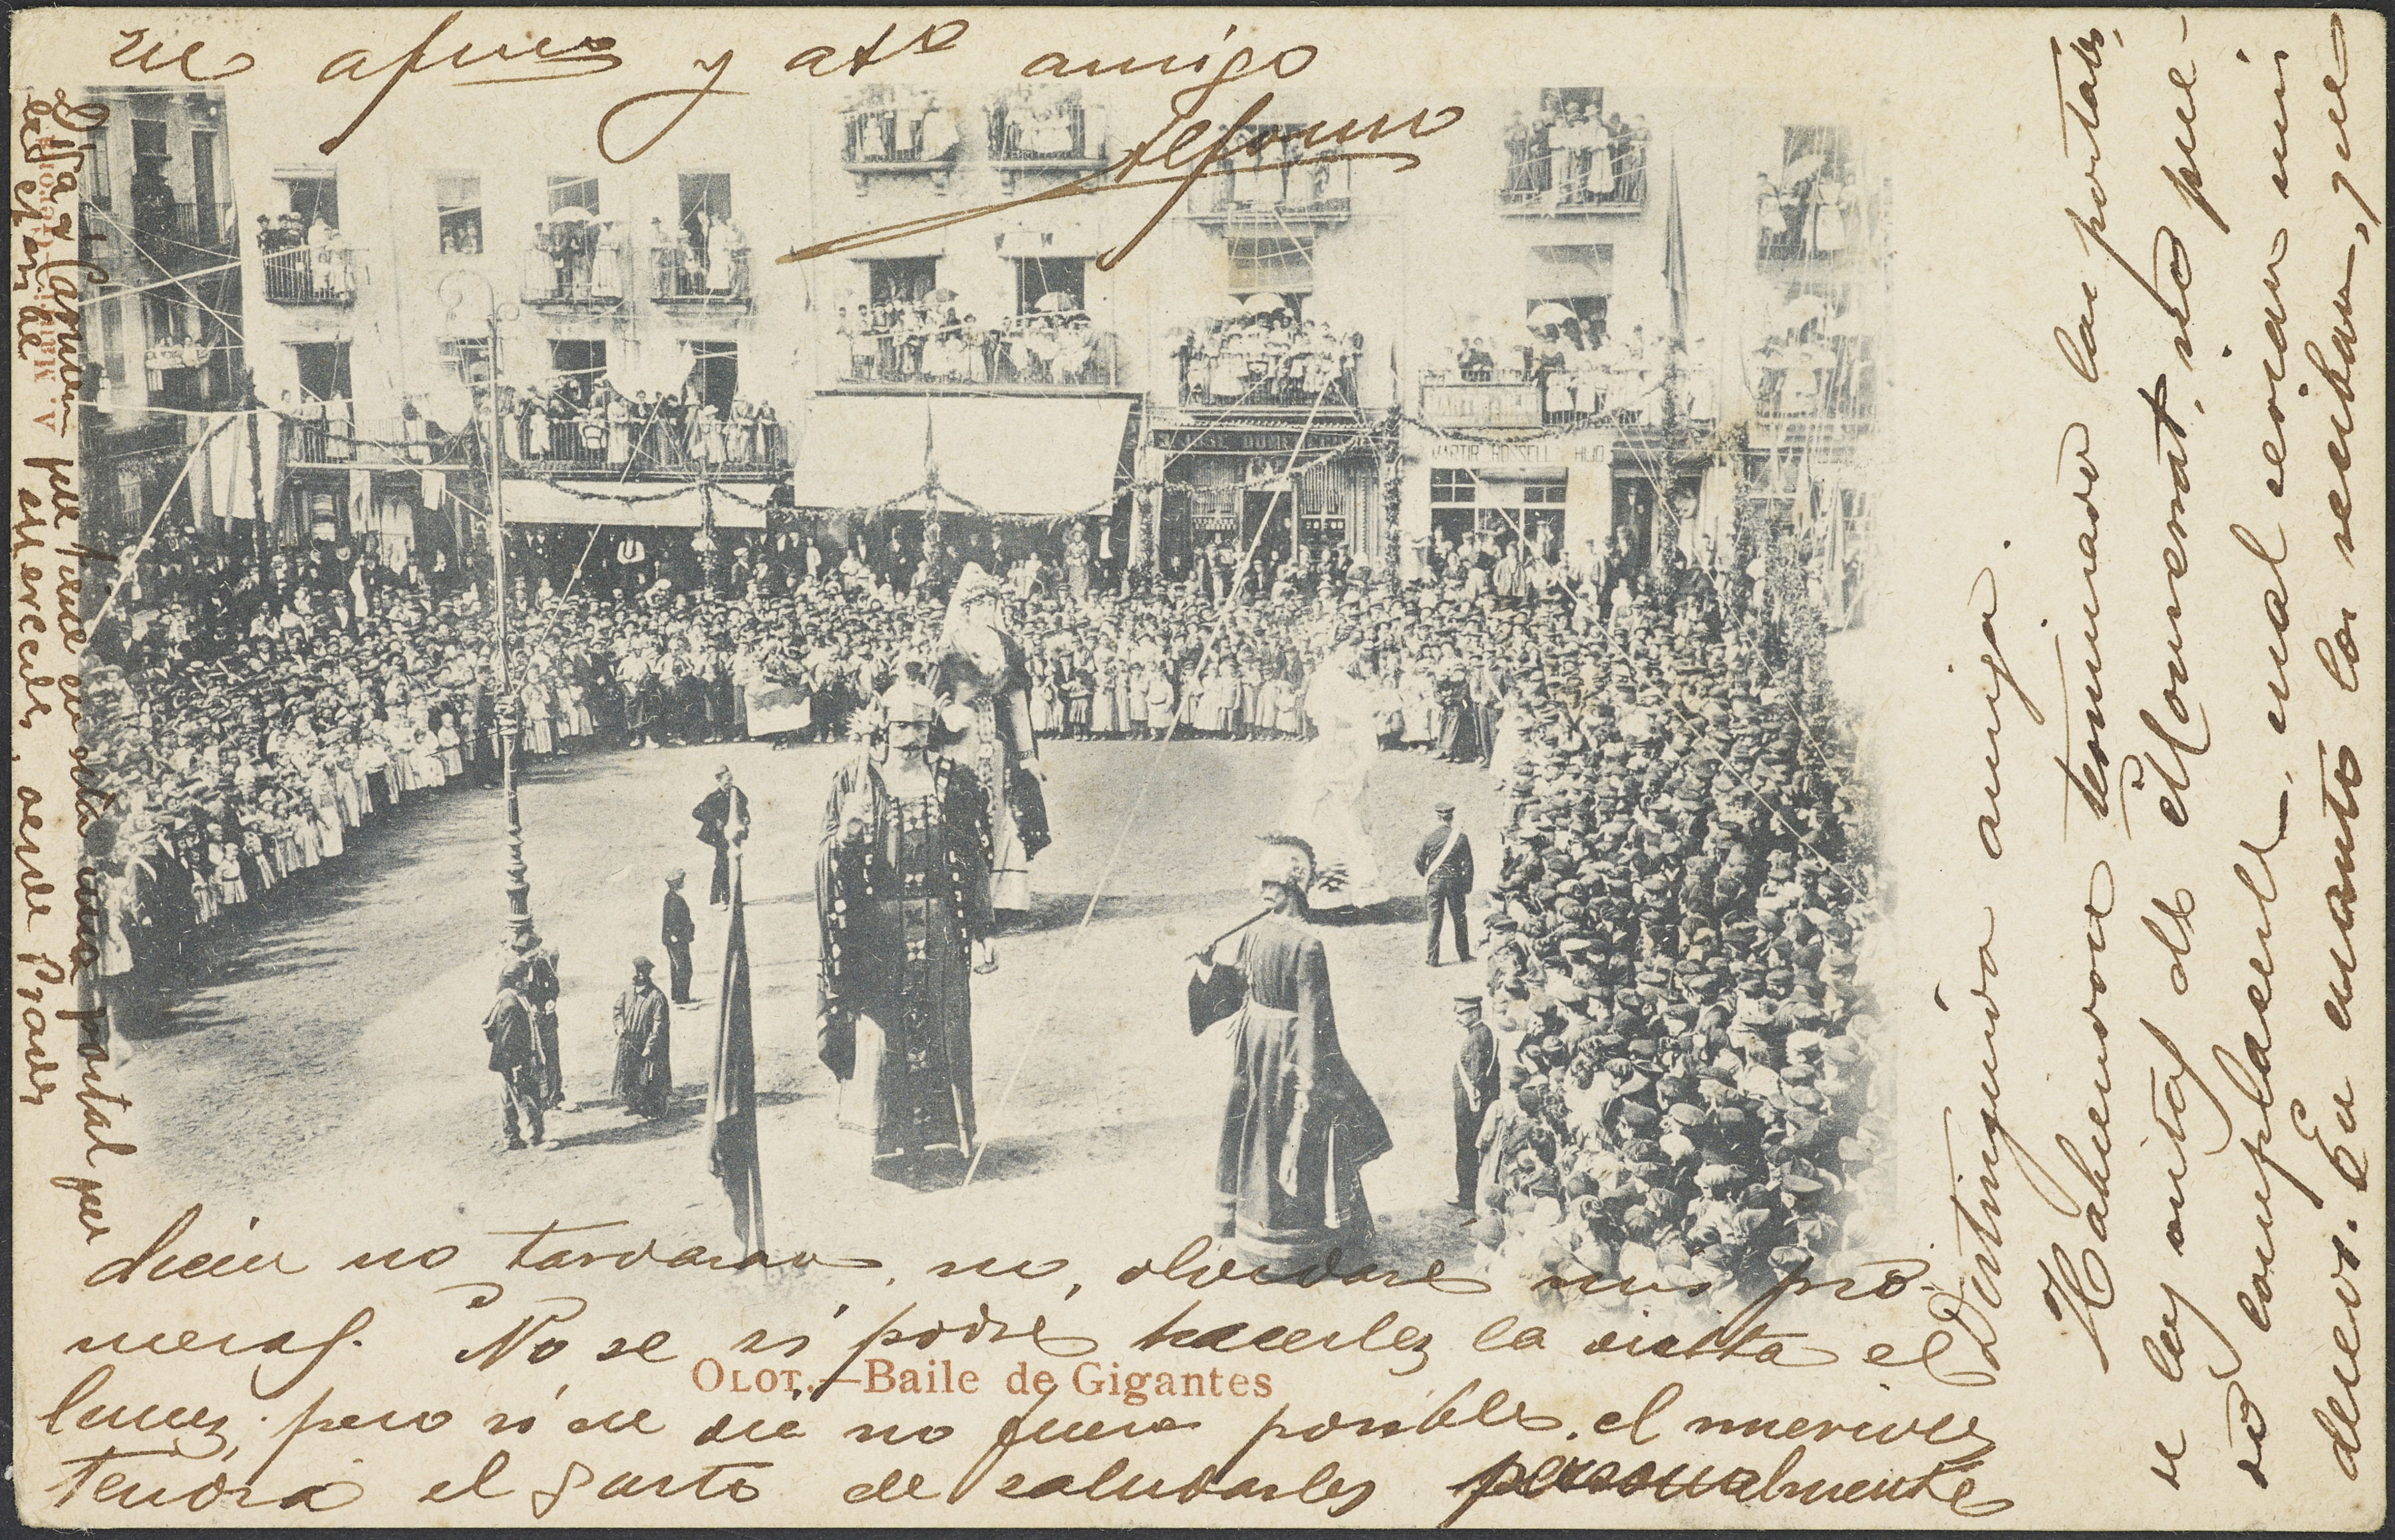 Distinguida amiga.
Habiendose terminado las postales,
se las vistas de Monserrat, no pue-
do complacerle cual serian mis
deseos. En cuanto los reciban, que
dicen no tardaran, no, olvidaré mis pro-
mesas. No se si podré hacerles la visita el
lunes, pero si ese dia no fuera posible, el miercoles
tendrá el gusto de saludarles personalmente
su afmo y atto amigo
Alfonso
Diga a Carmen que tiene en esta una postal que
le espera desde Prades
OLOT.—Baile de Gigantes
MARTIR ROSSELL HIJO